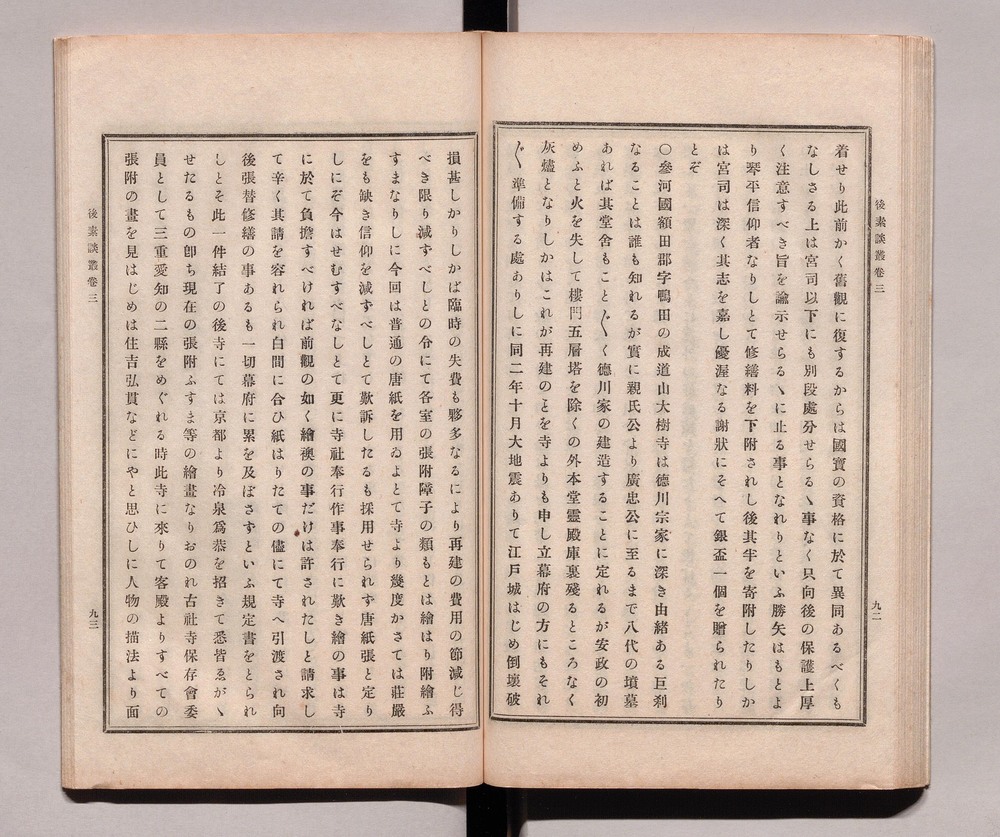 後素談叢卷三
九二
着せり此前かく舊觀に復するからは國寶の資格に於て異同あるべくも
なしさる上は宮司以下にも別段處分せらるヽ事なく只向後の保護上厚
く注意すべき旨を諭示せらるヽに止る事となれりといふ勝矢はもとよ
り琴平信仰者なりしとて修繕料を下附されし後其半を寄附したりしか
は宮司は深く其志を嘉し優渥なる謝狀にそへて銀盃一個を贈られたり
とぞ
〇參河國額田郡字鴨田の成道山大樹寺は德川宗家に深き由緒ある巨刹
なることは誰も知れるが實に親氏公より廣忠公に至るまで八代の墳墓
あれば其堂舍もこと〲く德川家の建造することに定れるが安政の初
めふと火を失して樓門五層塔を除くの外本堂靈殿庫裏殘るところなく
灰燼となりしかはこれが再建のことを寺よりも申し立幕府の方にもそれ
〲準備する處ありしに同二年十月大地震ありて江戸城はじめ倒壞破
損甚しかりしかば臨時の失費も夥多なるにより再建の費用の節減じ得
べき限り減ずべしとの令にて各室の張附障子の類もとは繪はり附繪ふ
すまなりしに今回は普通の唐紙を用ゐよとて寺より幾度かさては莊嚴
をも缺き信仰を減ずべしとて歎訴したるも採用せられず唐紙張と定り
しにぞ今はせむすべなしとて更に寺社奉行作事奉行に歎き繪の事は寺
に於て負擔すべければ前觀の如く繪襖の事だけは許されたしと請求し
て辛く其請を容れられ白間に合ひ紙はりたての儘にて寺へ引渡され向
後張替修繕の事あるも一切幕府に累を及ぼさずといふ規定書をとられ
しとそ此一件結了の後寺にては京都より冷泉爲恭を招きて悉皆ゑがヽ
せたるもの卽ち現在の張附ふすま等の繪畫なりおのれ古社寺保存會委
員として三重愛知の二縣をめぐれる時此寺に來りて客殿よりすべての
張附の畫を見はじめは住吉弘貫などにやと思ひしに人物の描法より面
後素談叢卷三
九三